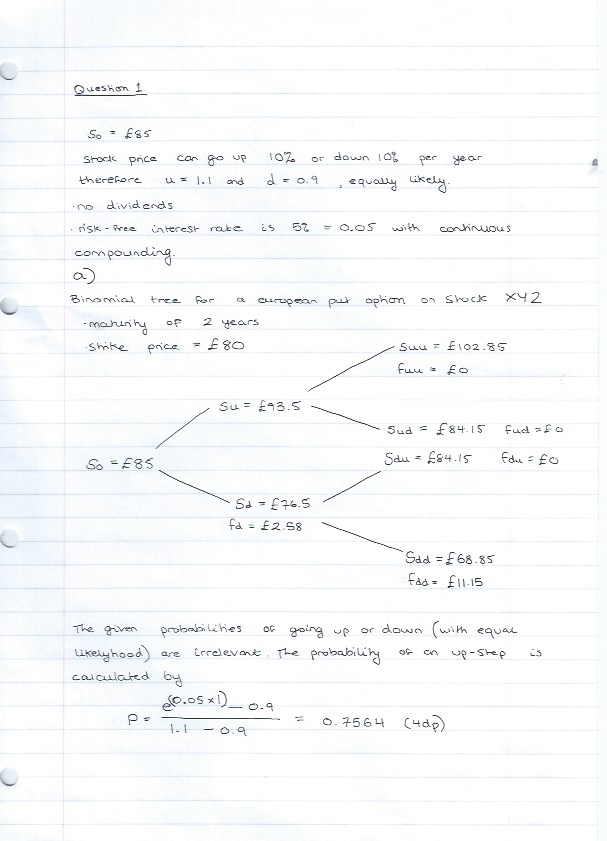 Question 1
S0 = £85
Stock price can go up 10% or down 10% per year
therefore u = 1.1 and d = 0.9 , equally likely.
·no dividends
·risk-free interest rate is 5% = 0.05 with continuous
compounding.
a)
Binomial tree for a european put option on stock XYZ
·maturity of 2 years
·strike price = £80
Suu = £102.85
fuu = £0
Su = £93.5
Sud = £84.15 fud = £0
S0 = £85
Sdu = £84.15 fdu = £0
Sd = £76.5
fd = £2.58
Sdd = £68.85
fdd = £11.15
The given probabilities of going up or down (with equal
likelyhood) are irrelevant. The probability of an up-step is
calculated by
P = e^(0.05×1) - 0.9 / 1.1 - 0.9 = 0.7564 (4dp)